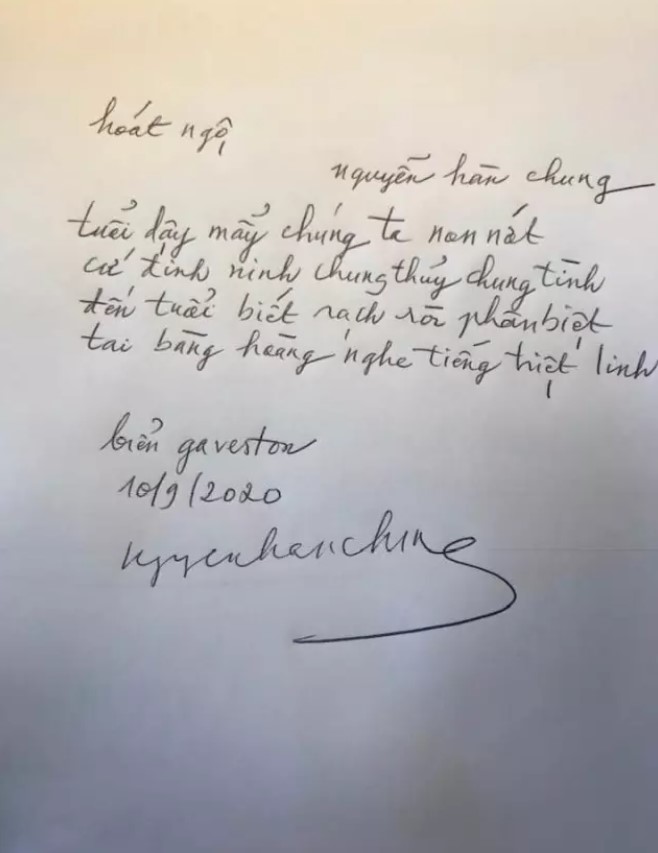 hoát ngộ
nguyễn hàn chung
tuổi dậy mẩy chúng ta non nớt
cứ đinh ninh chung thủy chung tình
đến tuổi biết rạch ròi phân biệt
tai bàng hoàng nghe tiếng triệt linh
biển gaveston
10/9/2020
nguyenhanchung